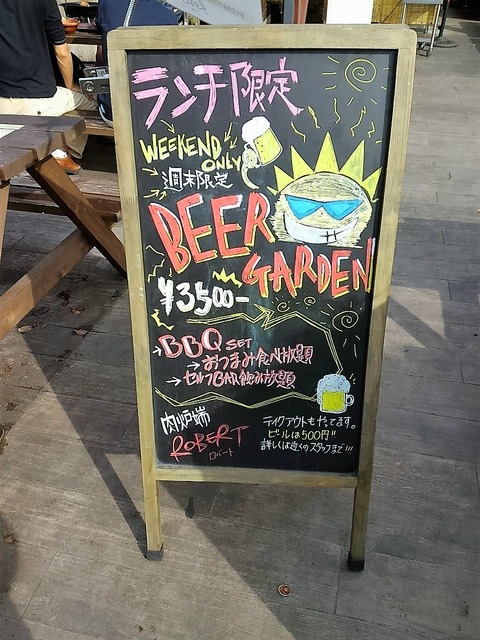 ランチ限定
WEEKEND
ONLY
週末限定
BEER
GARDEN
¥3500-
BBQ SET
おつまみ食べ放題
セルフBAR飲み放題
肉炉端
ROBERT
ロバート
テイクアウトもやってます。
ビールは500円!!
詳しくは近くのスタッフまで!!!